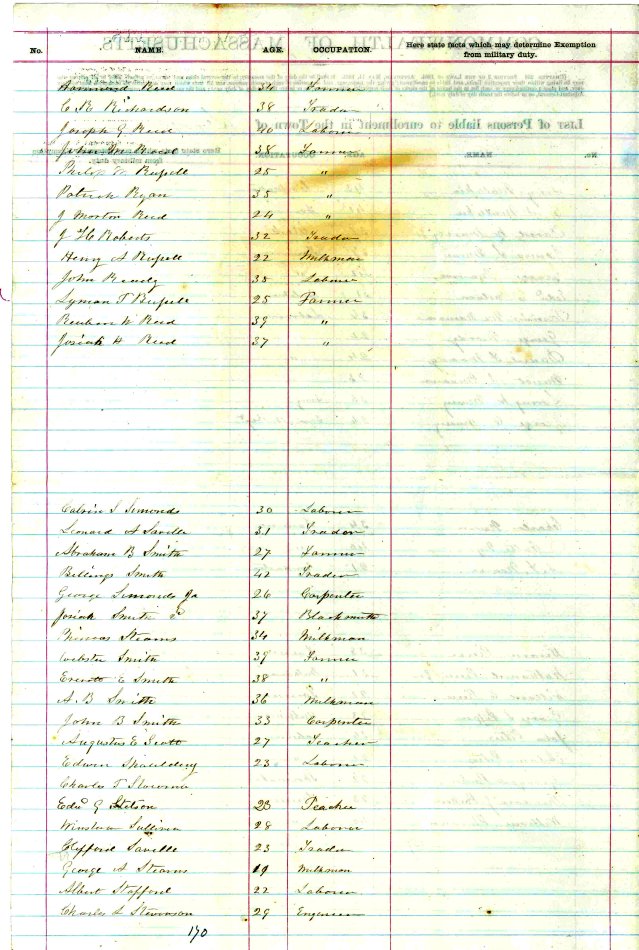 No. NAME. AGE. OCCUPATION. Here state facts which may determine Exemption from military duty.
Hammond Reed 34 Farmer
E. R. Richardson 38 Trader
Joseph G Reed 40 Laborer
John M Reed 38 Farmer
Philip W Russell 25 "
Patrick Ryan 35 "
J Morton Reed 24 "
J H Roberts 32 Trader
Henry A Russell 22 Milkman
John Ready 35 Laborer
Lyman T Russell 25 Farmer
Reuben W Reed 39 "
Josiah H Reed 37 "
Calvin S Simonds 30 Laborer
Leonard A Saville 31 Trader
Abraham B Smith 27 Farmer
Billings Smith 42 Trader
George Simonds Jr 26 Carpenter
Josiah Smith 2d 37 Blacksmith
Phineas Stearns 34 Milkman
Webster Smith 39 Farmer
Everett E Smith 38 "
A. B Smith 36 Milkman
John B Smith 33 Carpenter
Augustus E Scott 27 Teacher
Edwin Spaulding 23 Laborer
Charles T
Edwd G Stetson 23 Teacher
Sullivan 28 Laborer
Clifford Saville 23 Trader
George A Stearns 19 Milkman
Albert Stafford 22 Laborer
Charles Stevenson 29 Engineer
170